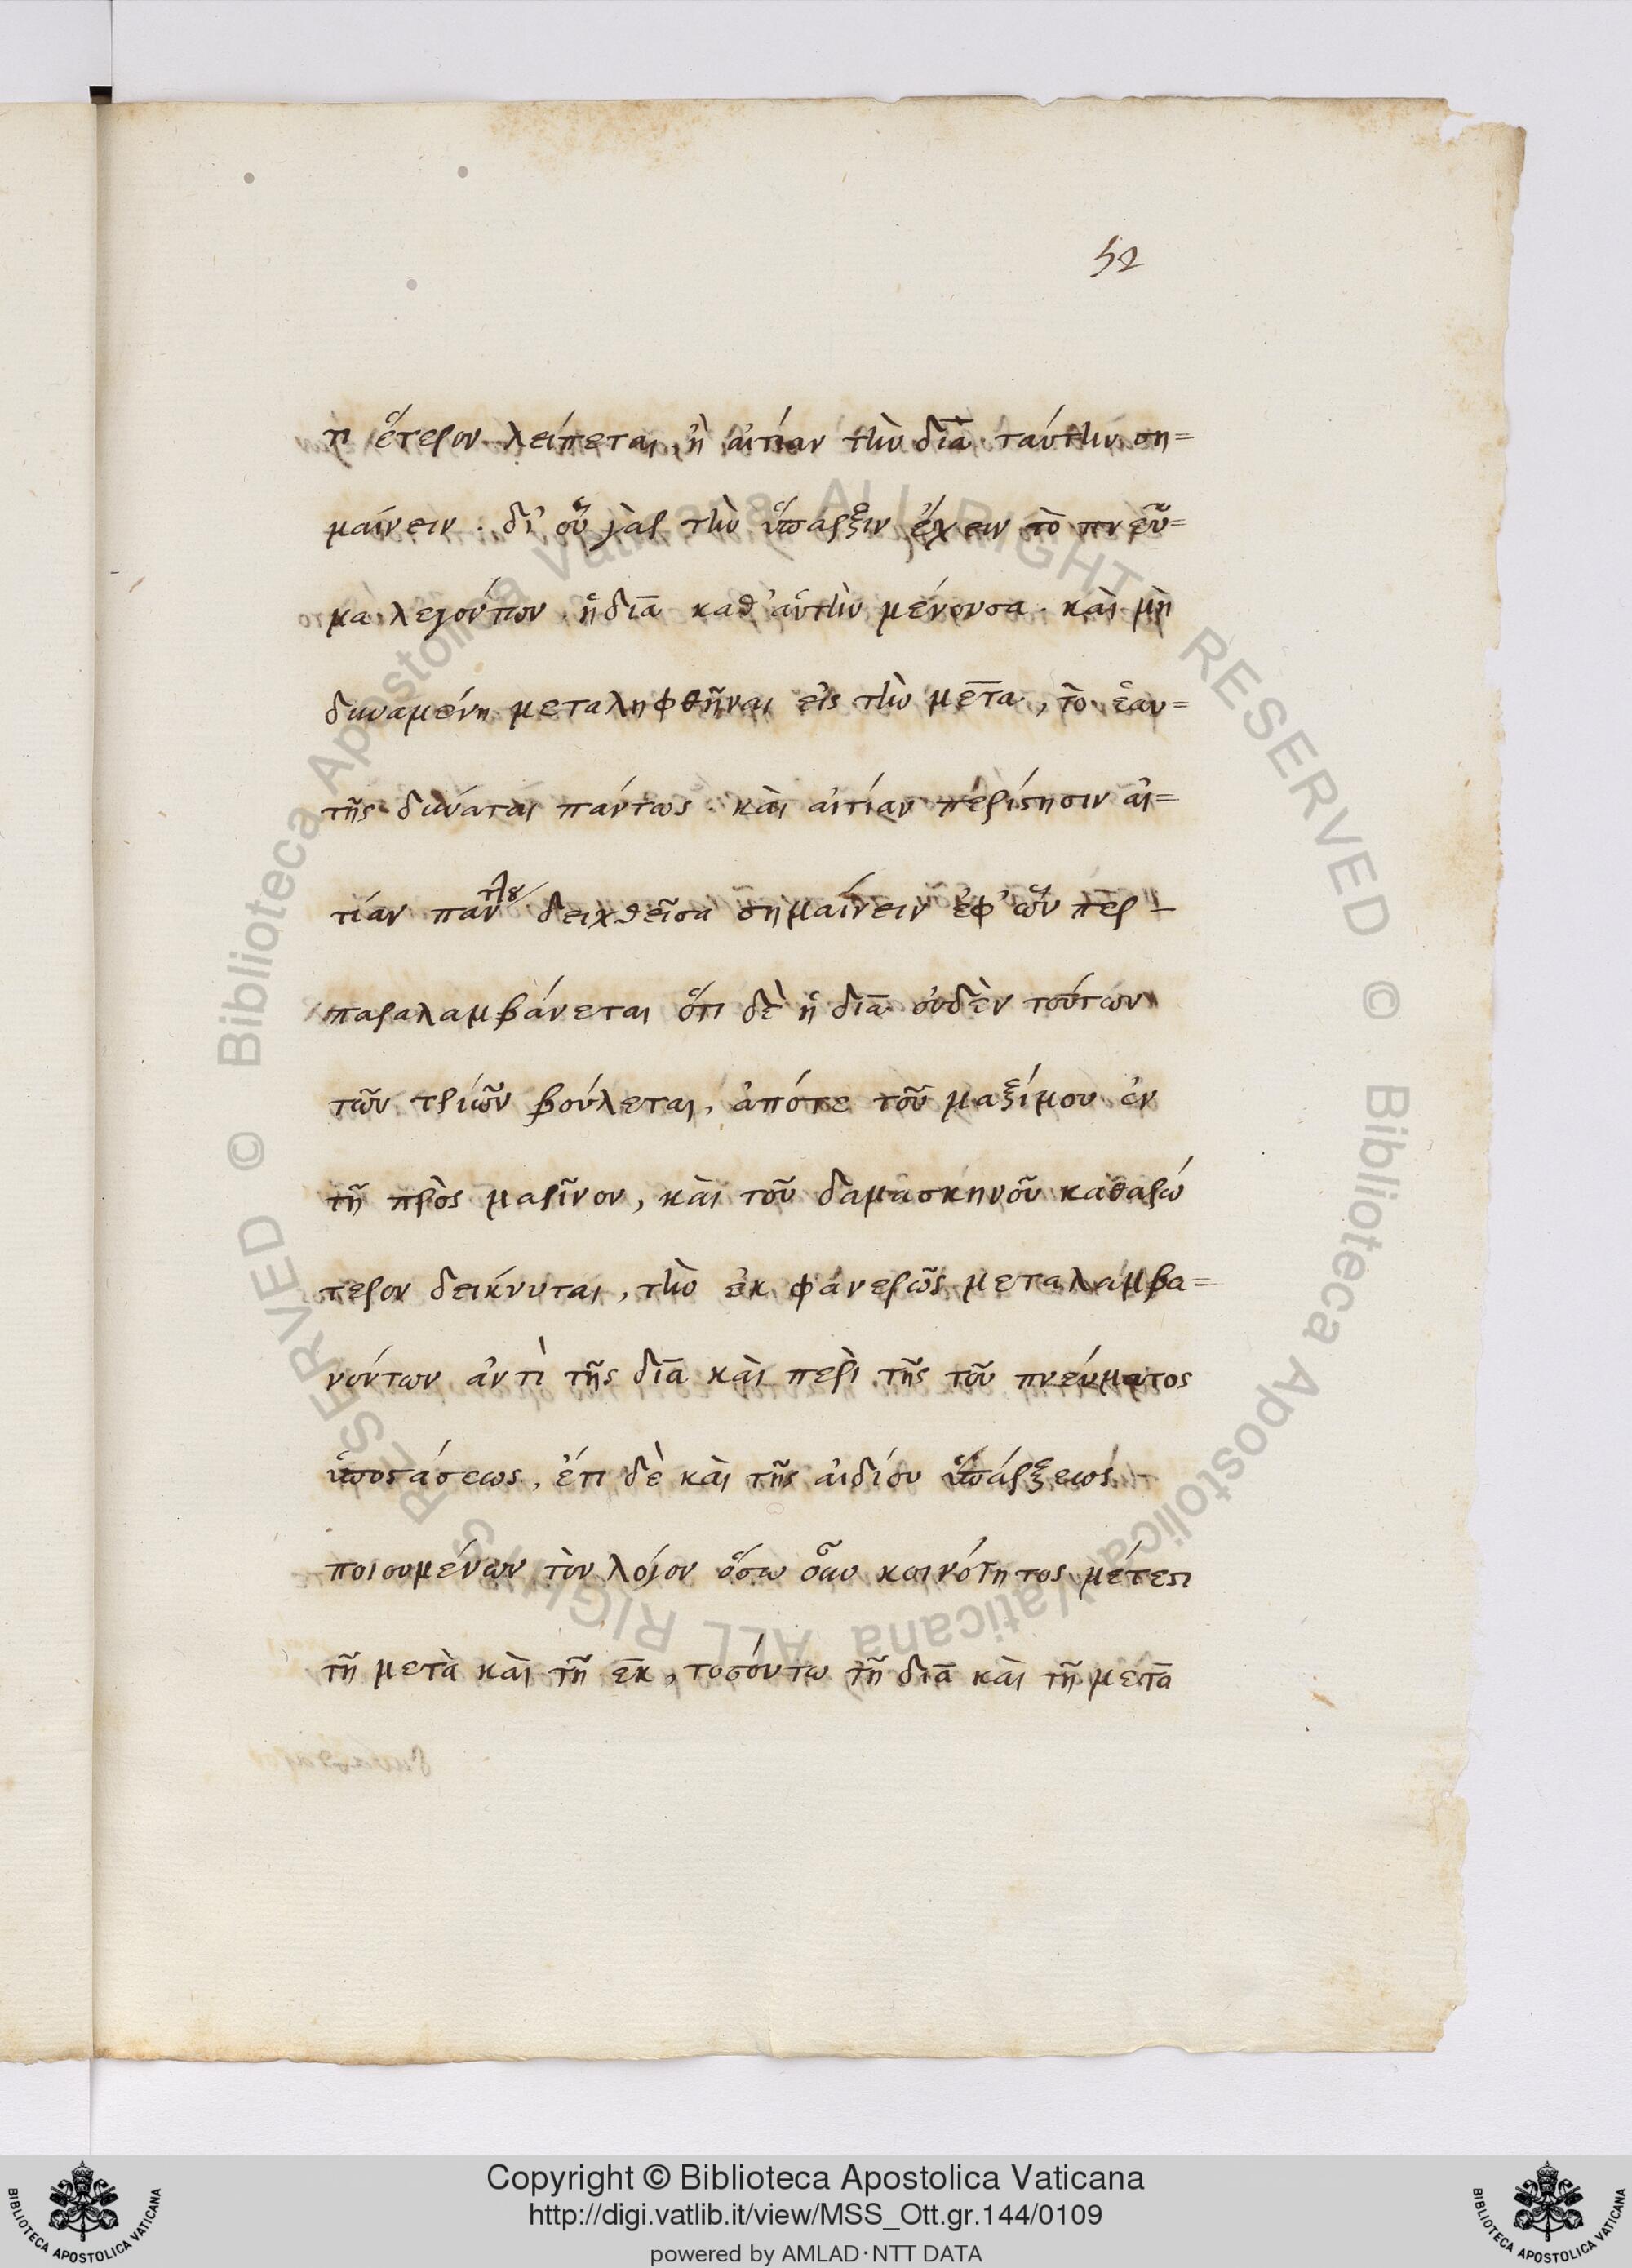 52
τι ἕτερον λείπεται, ἢ αἰτίαν τὴν διὰ ταύτην ση=
μαίνειν. δι' οὗ γὰρ τὴν ὕπαρξιν ἔχειν τὸ πνεῦ=
μα λεγόντων ἡ διὰ καθ' αὑτὴν μένουσα. καὶ μὴ
δυναμένη μεταληφθῆναι εἰς τὴν μετα, τὸ ἑαυ=
τῆς δύναται πάντως. καὶ αἰτίαν περίστησιν αἰ=
τίαν δειχθεῖσα σημαίνειν ἐφ' ὧν περ -
παραλαμβάνεται ὅτι δὲ ἡ διὰ οὐδὲν τούτων
τῶν τριῶν βούλεται, ἀπότε τοῦ μαξίμου ἐν
τῇ πρὸς μαρῖνον, καὶ τοῦ δαμασκηνοῦ καθαρώ
τερον δείκνυται, τὴν ἐκ φανερῶς μεταλαμβα=
νόντων ἀντὶ τῆς διὰ καὶ περὶ τῆς τοῦ πνεύματος
ὑποστάσεως, ἔτι δὲ καὶ τῆς ἀιδίου ὑπάρξεως
ποιουμένων τὸν λόγον ὅσω οὖν κοινότητος μέτεστι
τῇ μετὰ καὶ τῇ ἐκ, τοσούτω τῇ διὰ καὶ τῇ μετὰ
© Biblioteca Apostolica Vaticana ALL RIGHTS RESERVED
© Biblioteca Apostolica Vaticana ALL RIGHTS RESERVED
Copyright © Biblioteca Apostolica Vaticana
http://digi.vatlib.it/view/MSS_Ott.gr.144/0109
powered by AMLAD·NTT DATA
BIBLIOTECA APOSTOLICA VATICANA
BIBLIOTECA APOSTOLICA VATICANA